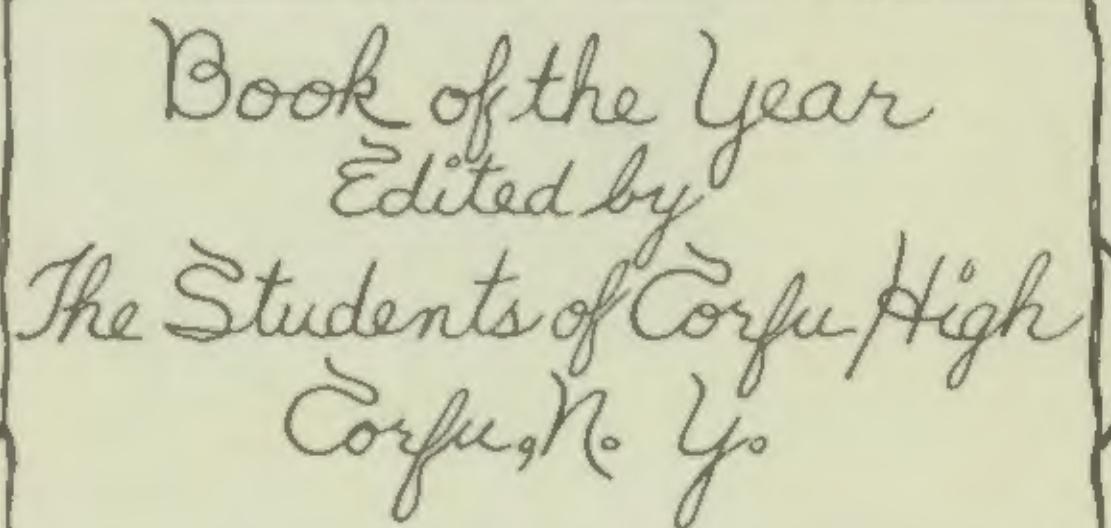 Book of the Year
Edited by
The Students of Corfu High
Corfu, N. Y.